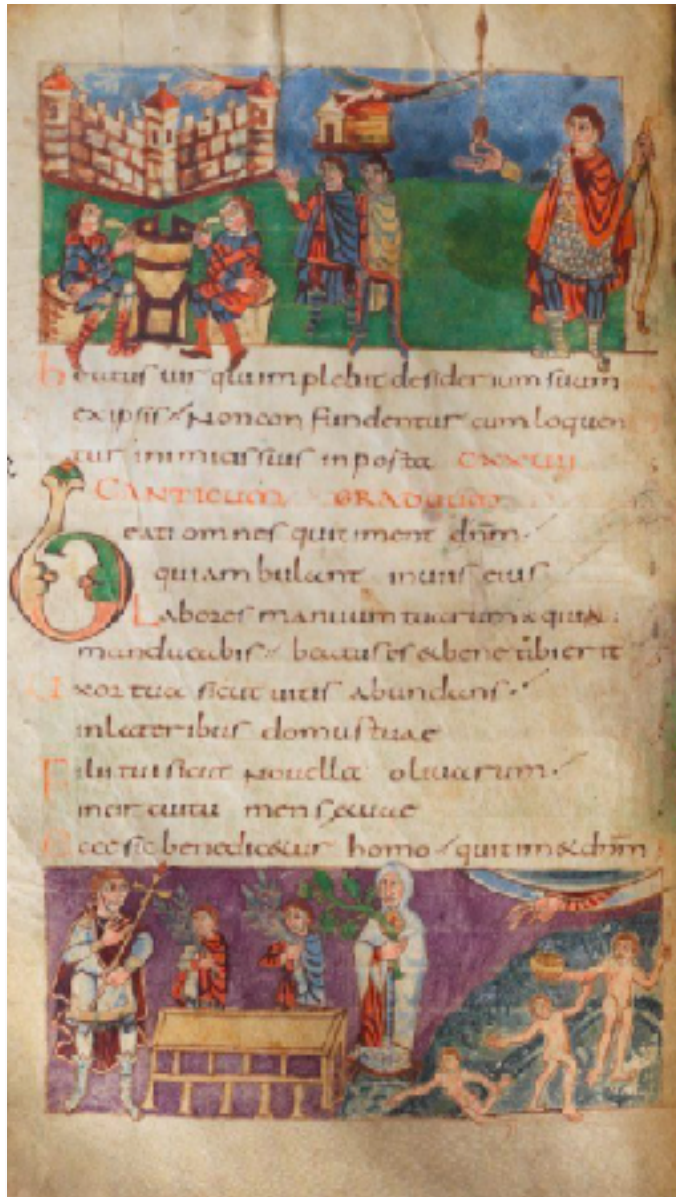 beatus uir qui implebit desiderium suum
ex ipsis Non confundentur cum loquen
tur inimicis suis in porta CXXVII
CANTICUM GRADUUM
Beati omnes qui timent dnm
qui ambulant in uiis eius
Labores manuum tuarum quia
manducabis beatus es & bene tibi erit
Uxor tua sicut uitis abundans
in lateribus domus tuae
Filii tui sicut Nouella oliuarum
in circuitu mensae tuae
Ecce sic benedicetur homo qui tim& dnm